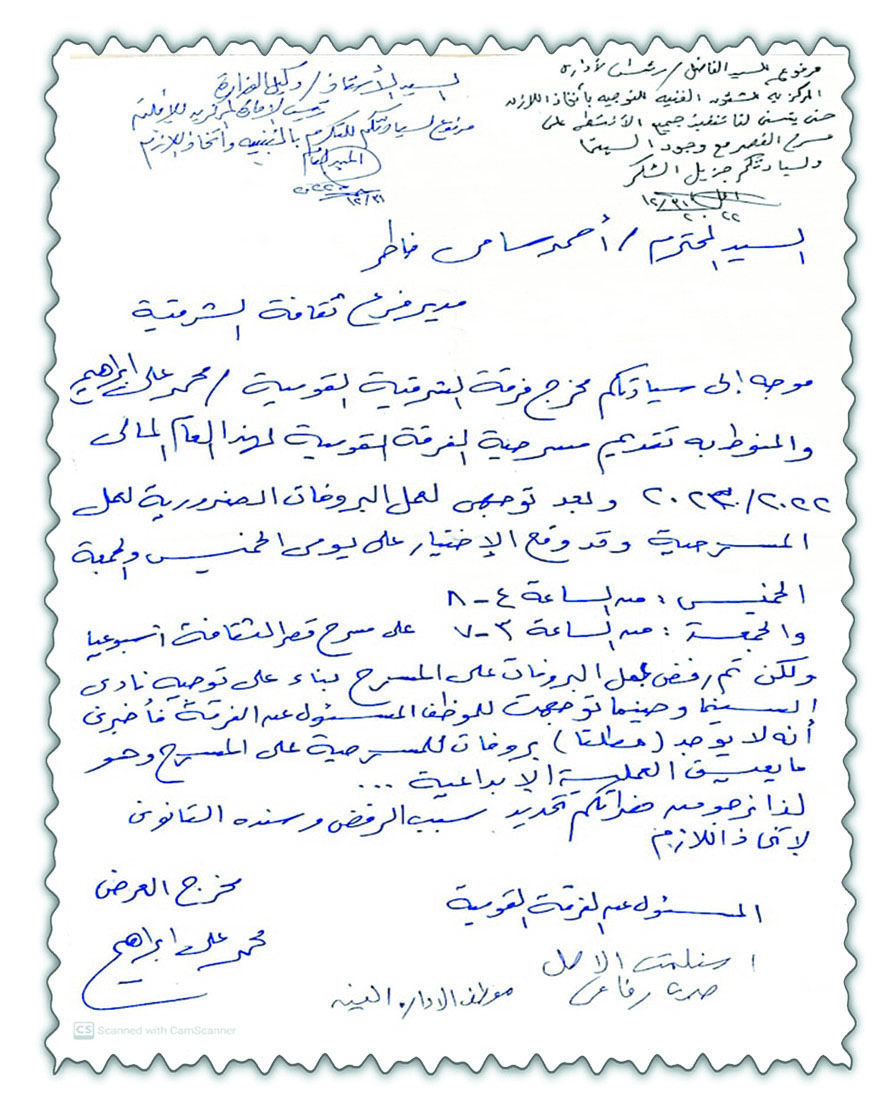 مرفوع للسيد الفاضل / رئيس الإدارة
المركزية للشئون الفنية للتوجيه بأتخاذ اللازم
حتى يتسنى لنا تنفيذ جميع الأنشطة على
مسرح القصر مع وجود السينما
ولسيادتكم جزيل الشكر
١٢/٣١
٢٠٢٢
السيد الأستاذ / وكيل الوزارة
رئيس الإدارة المركزية للإقليم
مرفوع لسيادتكم للتكرم بالتنبيه واتخاذ اللازم
المدير العام
١٢/٣١
السيد المحترم / أحمد سامى خاطر
مدير فرع ثقافة الشرقية
موجه إلى سيادتكم مخرج فرقة الشرقية القومية / محمد على ابراهيم
والمنوط به تقديم مسرحية الفرقة القومية لهذا العام المالى
٢٠٢٣/٢٠٢٢ وبعد توجهى لعمل البروفات الضرورية لعمل
المسرحية وقد وقع الإختيار على يومى الخميس والجمعة
الخميس : من الساعة ٤ - ٨
والجمعة : من الساعة ٣ - ٧ على مسرح قصر الثقافة أسبوعيا
ولكن تم رفض عمل البروفات على المسرح بناء على توجيه نادى
السينما وحينما توجهت للموظف المسئول عن الفرقة فأخبرنى
أنه لا يوجد (مطلقا) بروفات للمسرحية على المسرح وهو
ما يعيق العملية الإبداعية ...
لذا نرجو من حضراتكم تحديد سبب الرفض وسنده القانونى
لاتخاذ اللازم
مخرج العرض
المسئول عن الفرقة القومية
محمد على ابراهيم
استلمت الاصل
رفاعى
موظف الادارة الفنية
CS Scanned with CamScanner